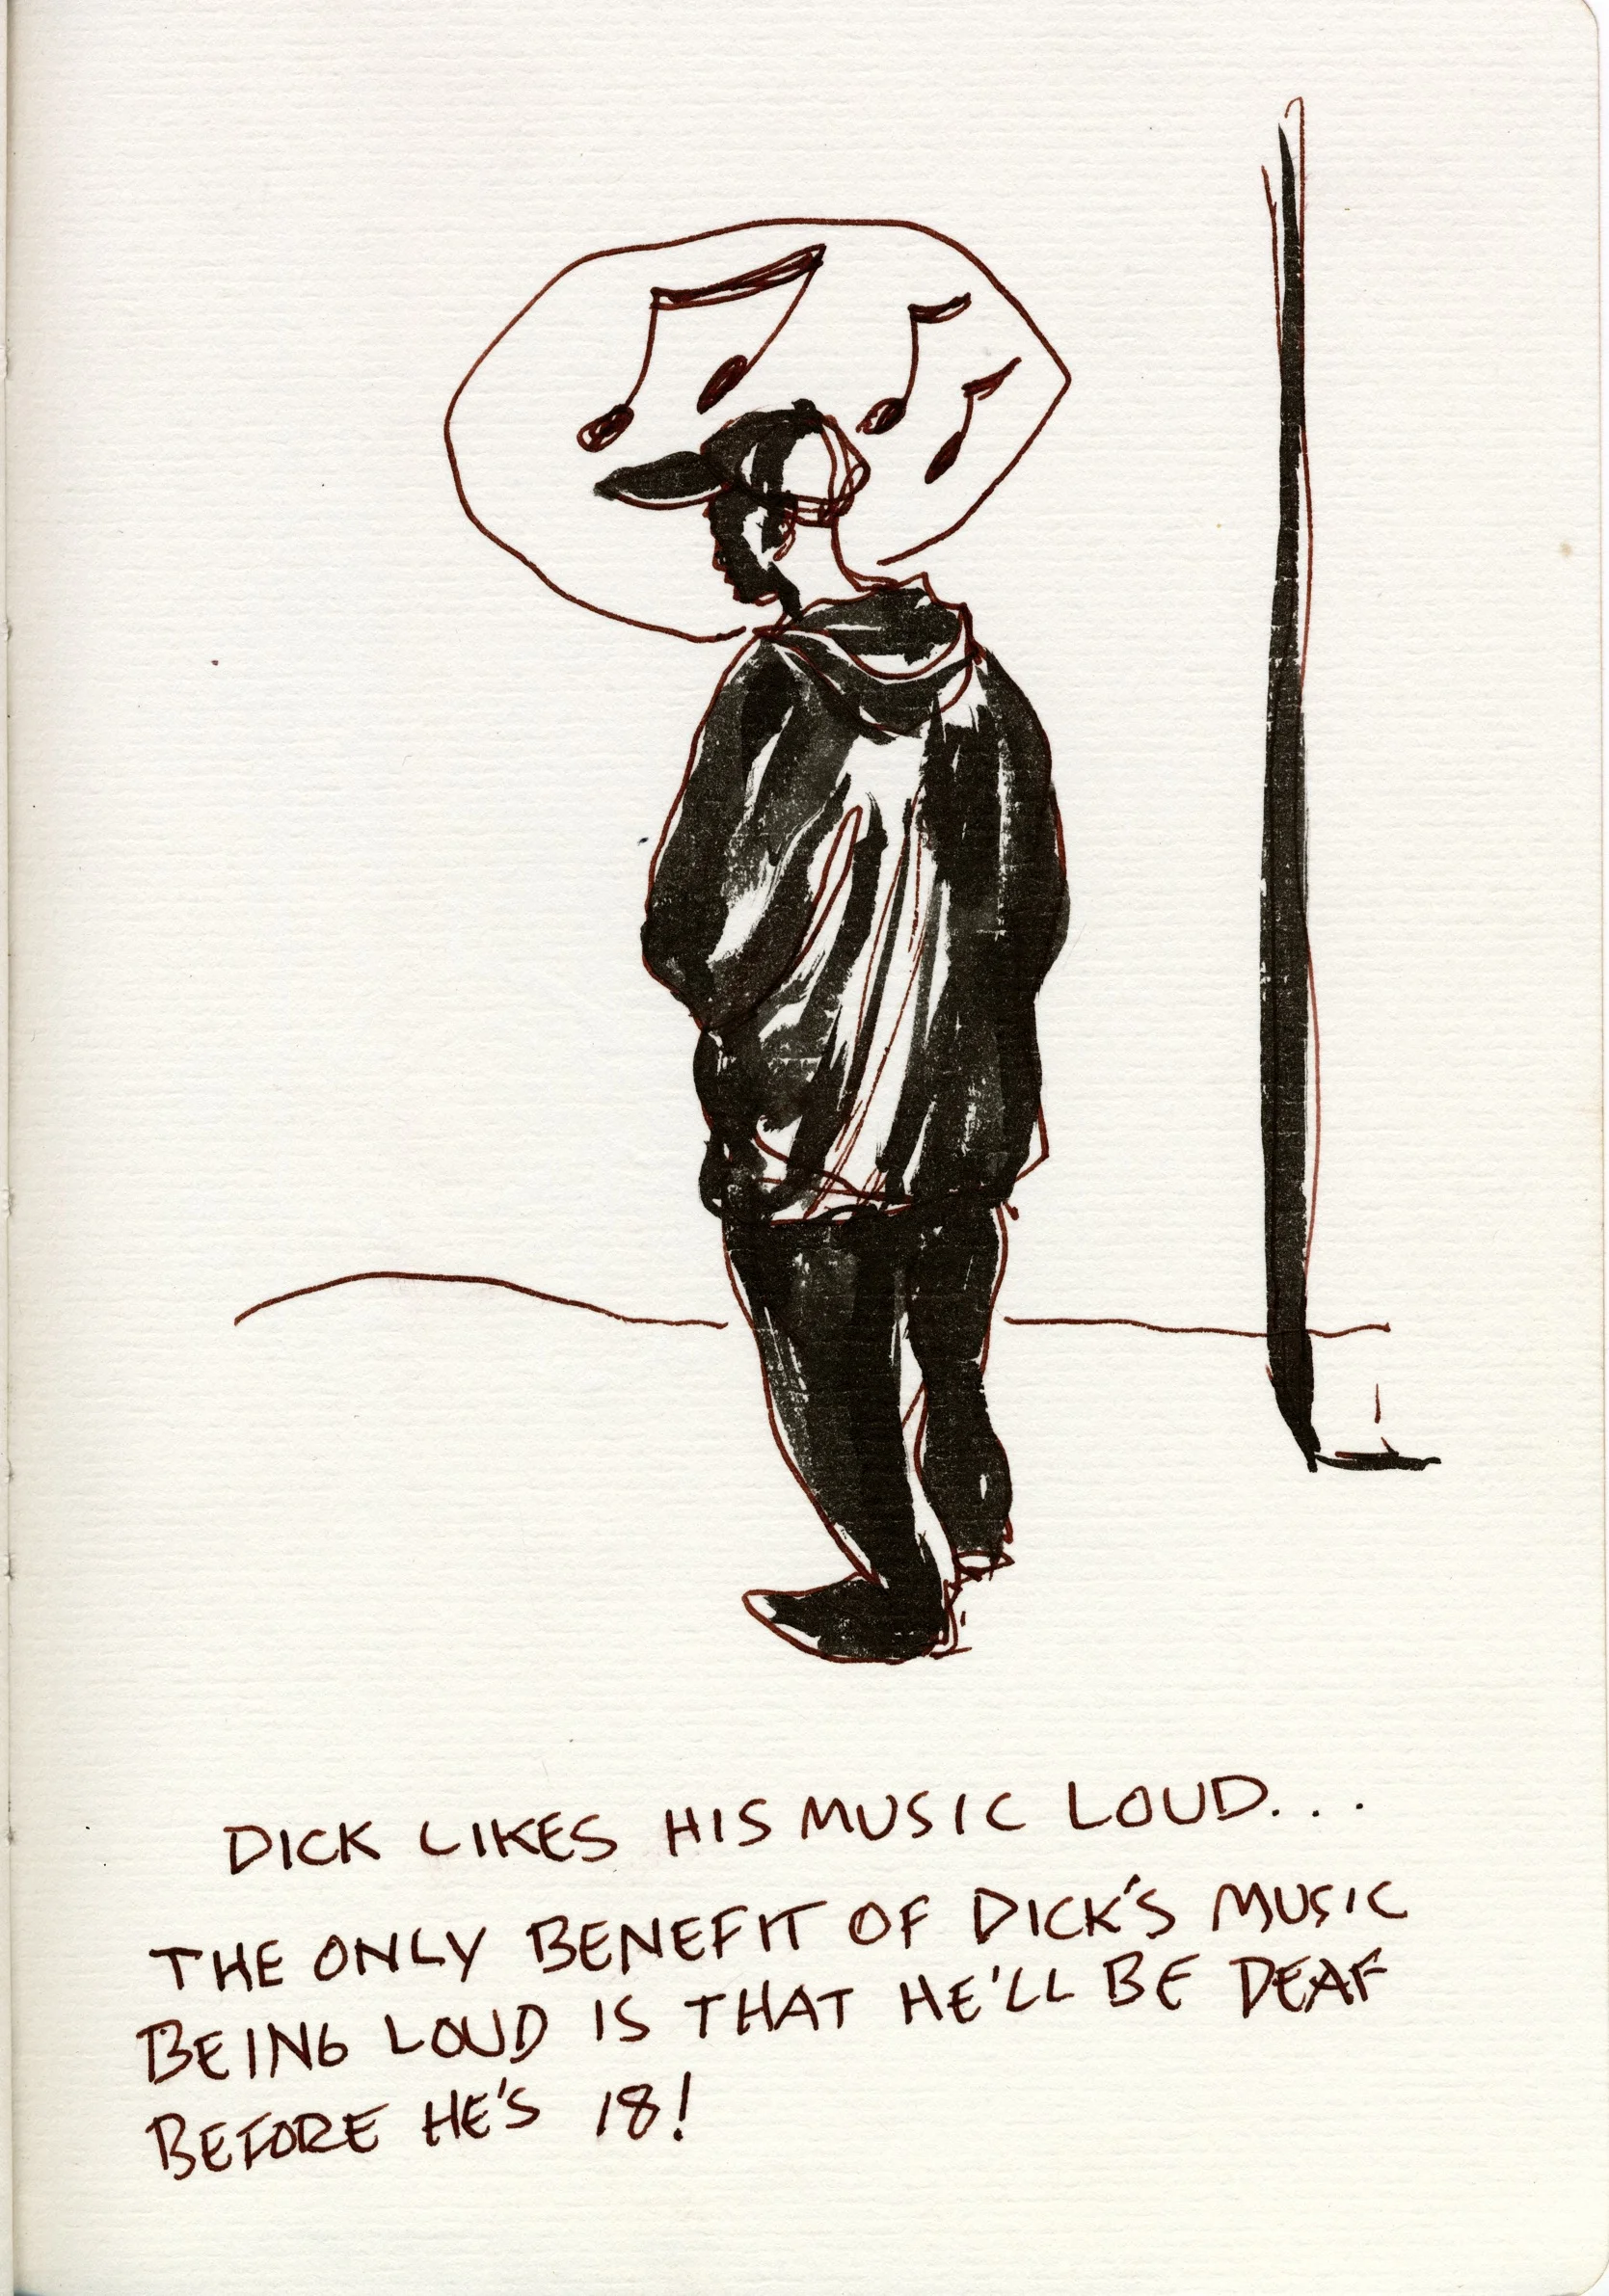 DICK LIKES HIS MUSIC LOUD...
THE ONLY BENEFIT OF DICK'S MUSIC
BEING LOUD IS THAT HE'LL BE DEAF
BEFORE HE'S 18!